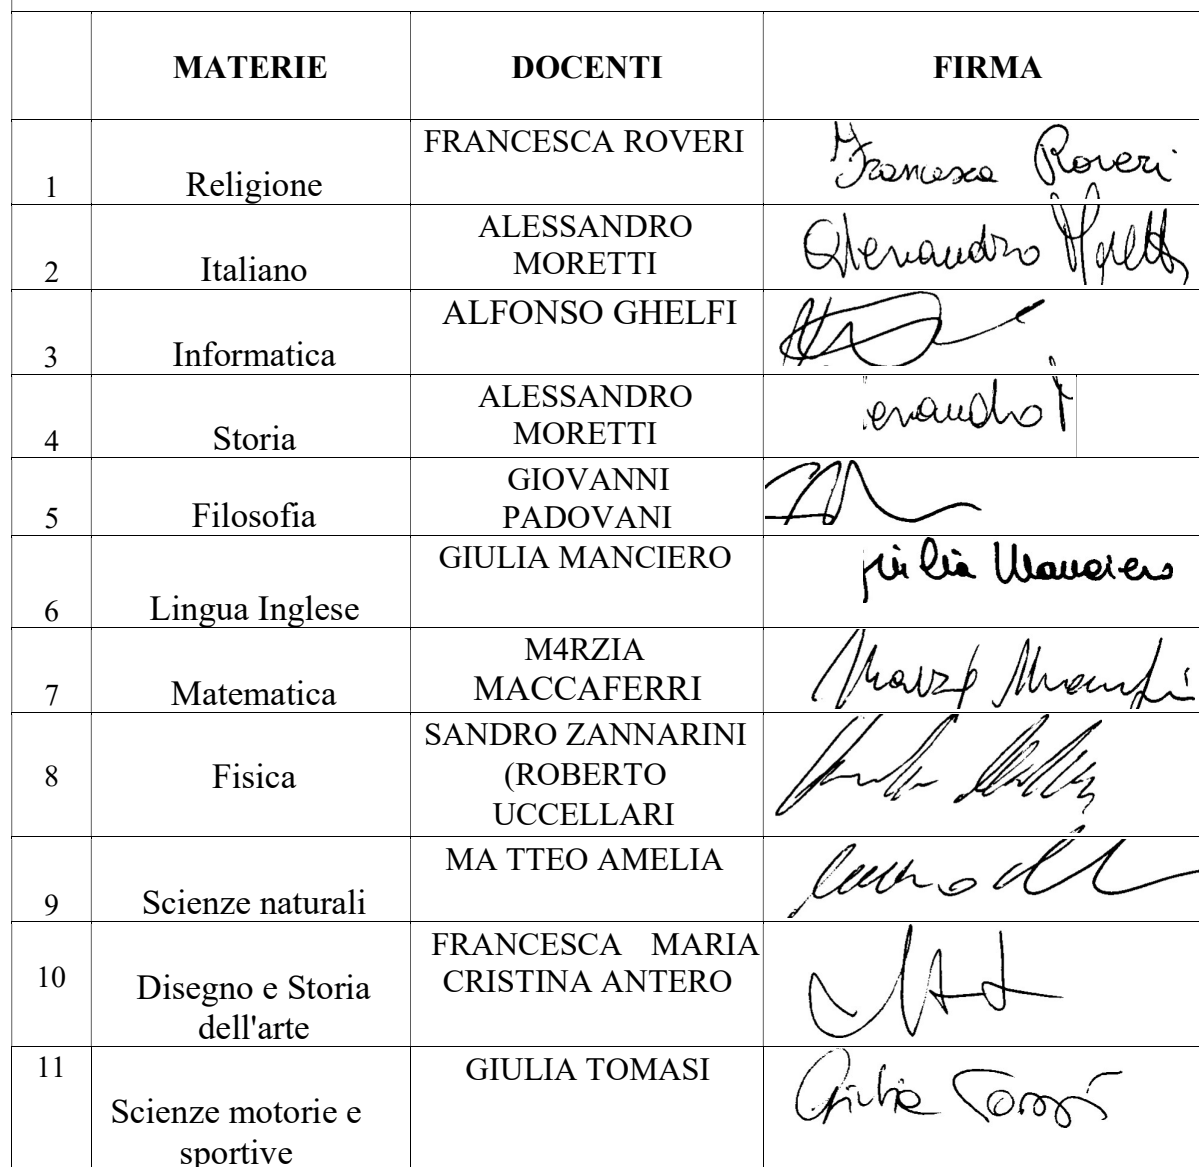 MATERIE DOCENTI FIRMA
1 Religione FRANCESCA ROVERI Francesca Roveri
2 Italiano ALESSANDRO
MORETTI Alessandro Moretti
3 Informatica ALFONSO GHELFI
4 Storia ALESSANDRO
MORETTI
5 Filosofia GIOVANNI
PADOVANI
6 Lingua Inglese GIULIA MANCIERO Giulia Manciero
7 Matematica M4RZIA
MACCAFERRI
8 Fisica SANDRO ZANNARINI
(ROBERTO
UCCELLARI
9 Scienze naturali MA TTEO AMELIA
10 Disegno e Storia
dell'arte FRANCESCA MARIA
CRISTINA ANTERO
11 Scienze motorie e
sportive GIULIA TOMASI Giulia Tomasi